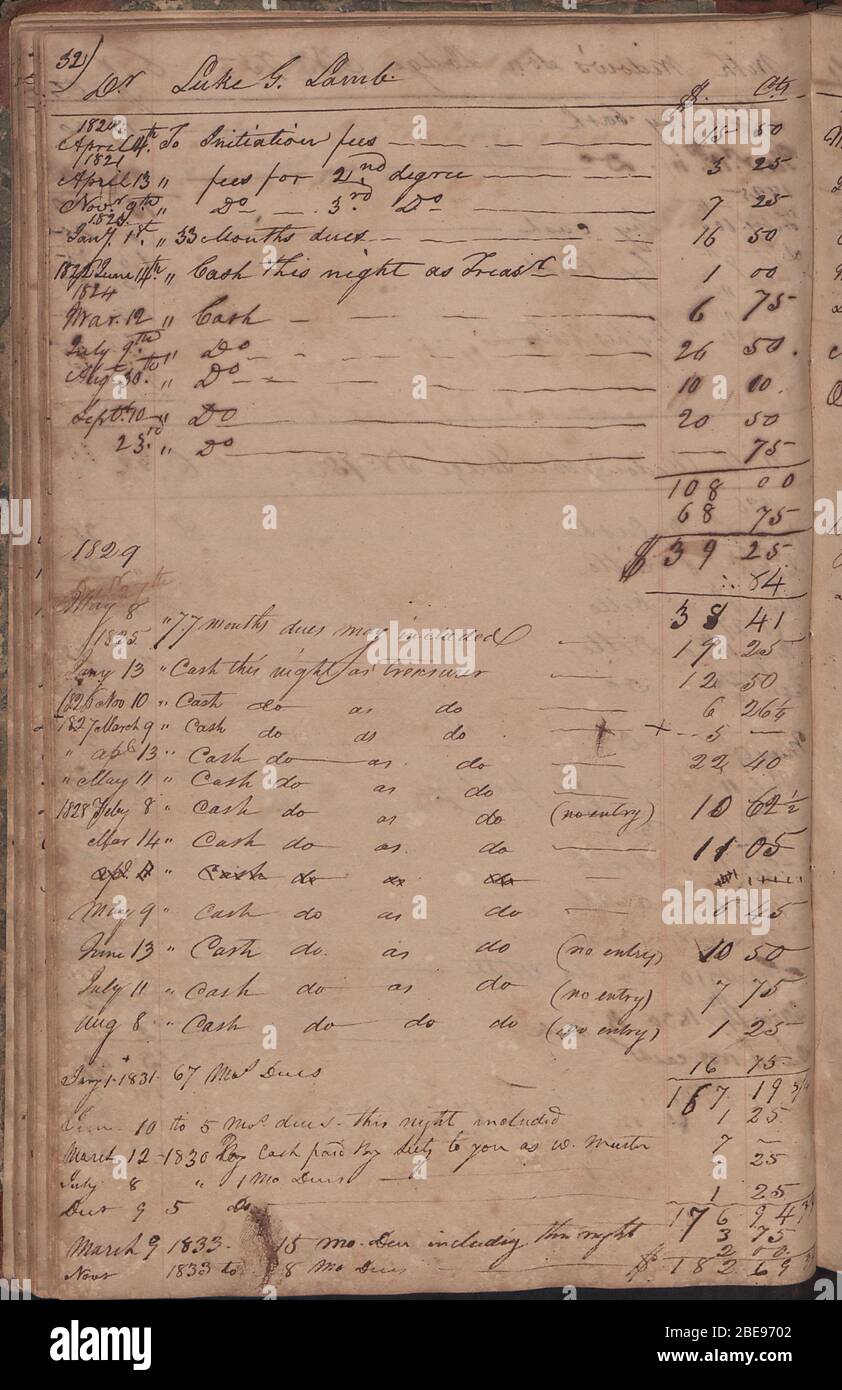 32)
Dr Luke G. Lamb. $. Cts
1820
April 14th To Initiation fees 15 50
1821
April 13 " fees for 2nd degree 3 25
Novr 9th " Do 3rd Do 7 25
Jany 1st. " 33 Months dues 16 50
June 14th " Cash this night as Treasr 1 00
1824
Mar. 12 " Cash 6 75
July 9th " Do 26 50.
Augt 30th. " Do 10 10.
Sept 10 " Do 20 50
23rd " Do 75
108 00
68 75
1829 $39 25
84
May 8 38 41
" 77 months dues may included 19 25
1825
Jany 13 " Cash this night as treasurer 12 50
1826 Nov 10 " Cash do as do 6 26¼
1827 March 9 " Cash do as do + + 5 —
" apl 13 " Cash do as do 22 40
" May 11 " Cash do as do
1828 Feby 8 " Cash do as do (no entry) 10 62½
Mar 14 " Cash do as do 11 05
" Cash do as do
May 9 " Cash do as do 45
June 13 " Cash do. as do (no entry) 10 50
July 11 " Cash do as do (no entry) 7 75
Aug 8 " Cash do do do (no entry) 1 25
Jany 1 1831 67 Mos Dues 16 75
167 19
10 to 5 Mos dues this night included 1 25
March 12 1830 cash paid By to you as W. Master 7 —
July 8 " 1 Mo Dues 25
9 5 Do 1 25
176 94
March 9 1833 15 mo. Dues including this night 3 75
Novr 1833 to 8 Mo Dues 2 00
$182 69
a alamy
Image ID: 2BE9702
www.alamy.com